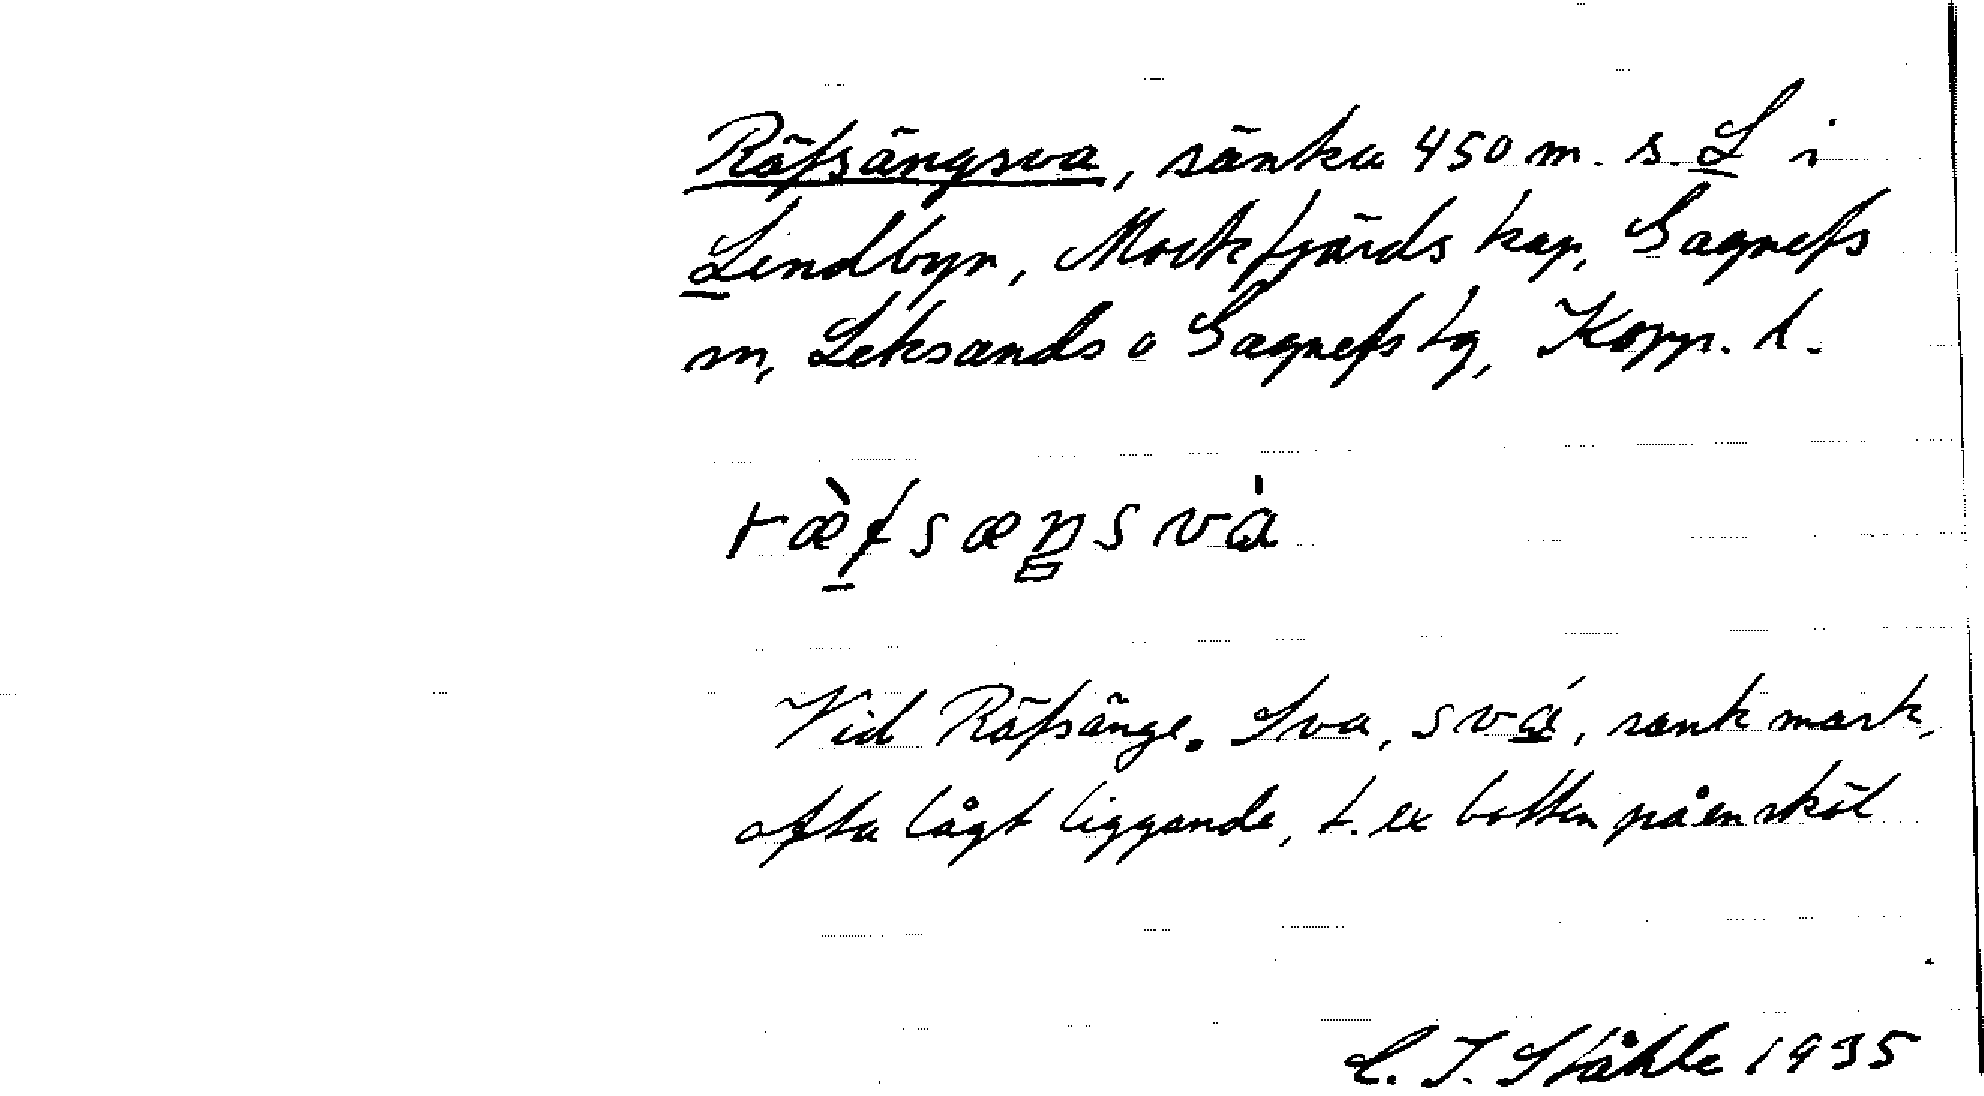 Räfsängsva, sänka 450 m. s. L i
Lindbyn, Mockfjärds kap, Gagnefs
sn, Leksands o Gagnefs tg, Kopp. l.
ræ̀fsæŋsvà
Vid Räfsänge. Sva, svá, sank mark,
ofta lågt liggande, t. ex botten på en sköl
C. I. Ståhle 1935